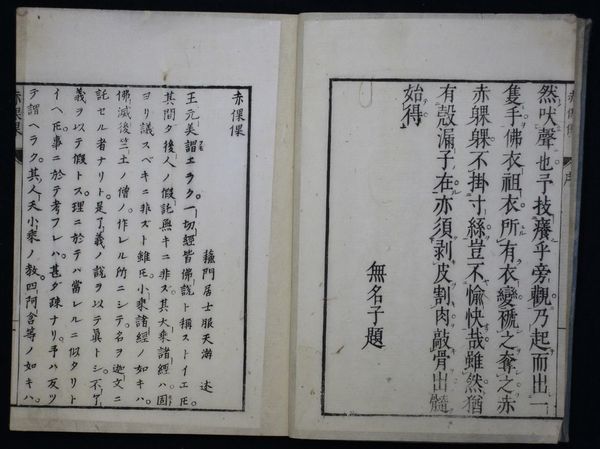 然吠聲也予技癢乎旁觀乃起而出一
隻手佛衣祖衣所有衣變褫之奪之赤
赤躶躶不掛寸絲豈不愉快哉雖然猶
有殼漏子在亦須剥皮割肉敲骨出髓
始得
無名子題
赤倮倮
蘓門居士服天游 述
王元美謂エラク一切經皆佛說ト稱ストイエ𪜈
其間タ後人ノ假託無キニ非ズ其大乘諸經ハ固
ヨリ議スベキニ非ズト雖𪜈小乘諸經ノ如キハ
佛滅後竺土ノ僧ノ作レル所ニシテ名ヲ迦文ニ
託セル者ナリト是了義ノ說ヲ以テ眞トシ不了
義ヲ以テ假トス理ニ於テハ當レルニ似タリト
イヘ𪜈事ニ於テ考フレハ甚ダ疎ナリ予ハ反ツ
テ謂ヘラク其人天小乘ノ教四阿含等ノ如キハ